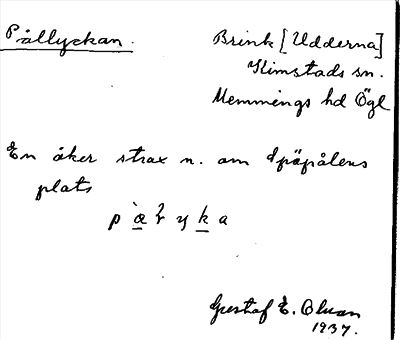 Pållyckan. Brink [Udderna]
Kimstads sn.
Memmings hd Ögl
En åker strax n. om Spåpålens
plats
Gustaf E. Olsson
1937.